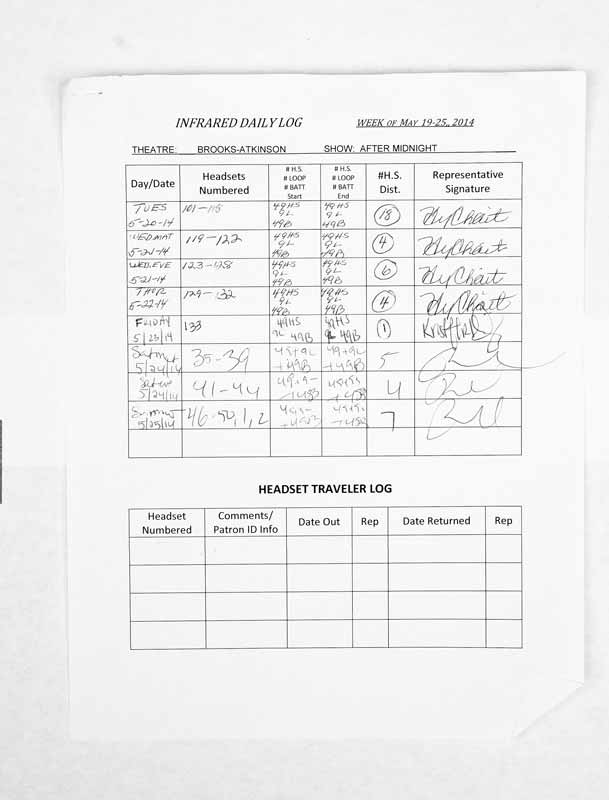 INFRARED DAILY LOG WEEK OF MAY 19-25, 2014
THEATRE: BROOKS-ATKINSON SHOW: AFTER MIDNIGHT
Day/Date Headsets Numbered # H.S. # LOOP # BATT Start # H.S. # LOOP # BATT End #H.S. Dist. Representative Signature
TUES 5-20-14 101-118 49HS 9L 49B 49HS 9L 49B 18
WED MAT 5-21-14 119-122 49HS 9L 49B 49HS 9L 49B 4
WED. EVE 5-21-14 123-128 49HS 9L 49B 49HS 9L 49B 6
THUR 5-22-14 129-132 49HS 9L 49B 49HS 9L 49B 4
FRIDAY 5/23/14 133 49HS 9L 49B 49HS 9L 49B 1
5/24/14 35-39 49+9L +49B 49+9L +49B 5
5/24/14 41-44 4
5/25/14 46-50, 1, 2 7
HEADSET TRAVELER LOG
Headset Numbered Comments/ Patron ID Info Date Out Rep Date Returned Rep